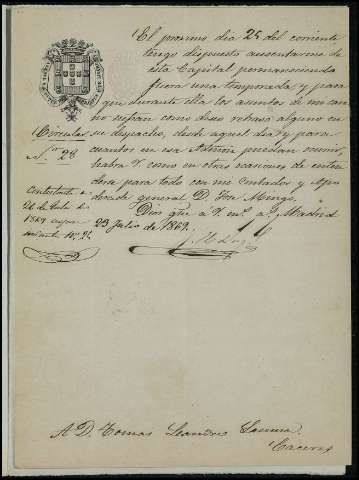 El proximo dia 25 del corriente
tengo dispuesto ausentarme de
esta Capital permaneciendo
fuera una temporada y para
que durante ella los asuntos de mi cargo
no sufran como deseo retraso alguno en
Circular su despacho, desde aquel dia y para
Nº 28 cuantos en esa puedan
habra V. como en otras ocasiones de enten
derse para todo con mi Contador y Apo
derado general D.
Contestada
de Julio de
1869
Dios gue a V. ms. as. Madrid
23 Julio de 1869.
A D. Tomas Leandro
Caceres